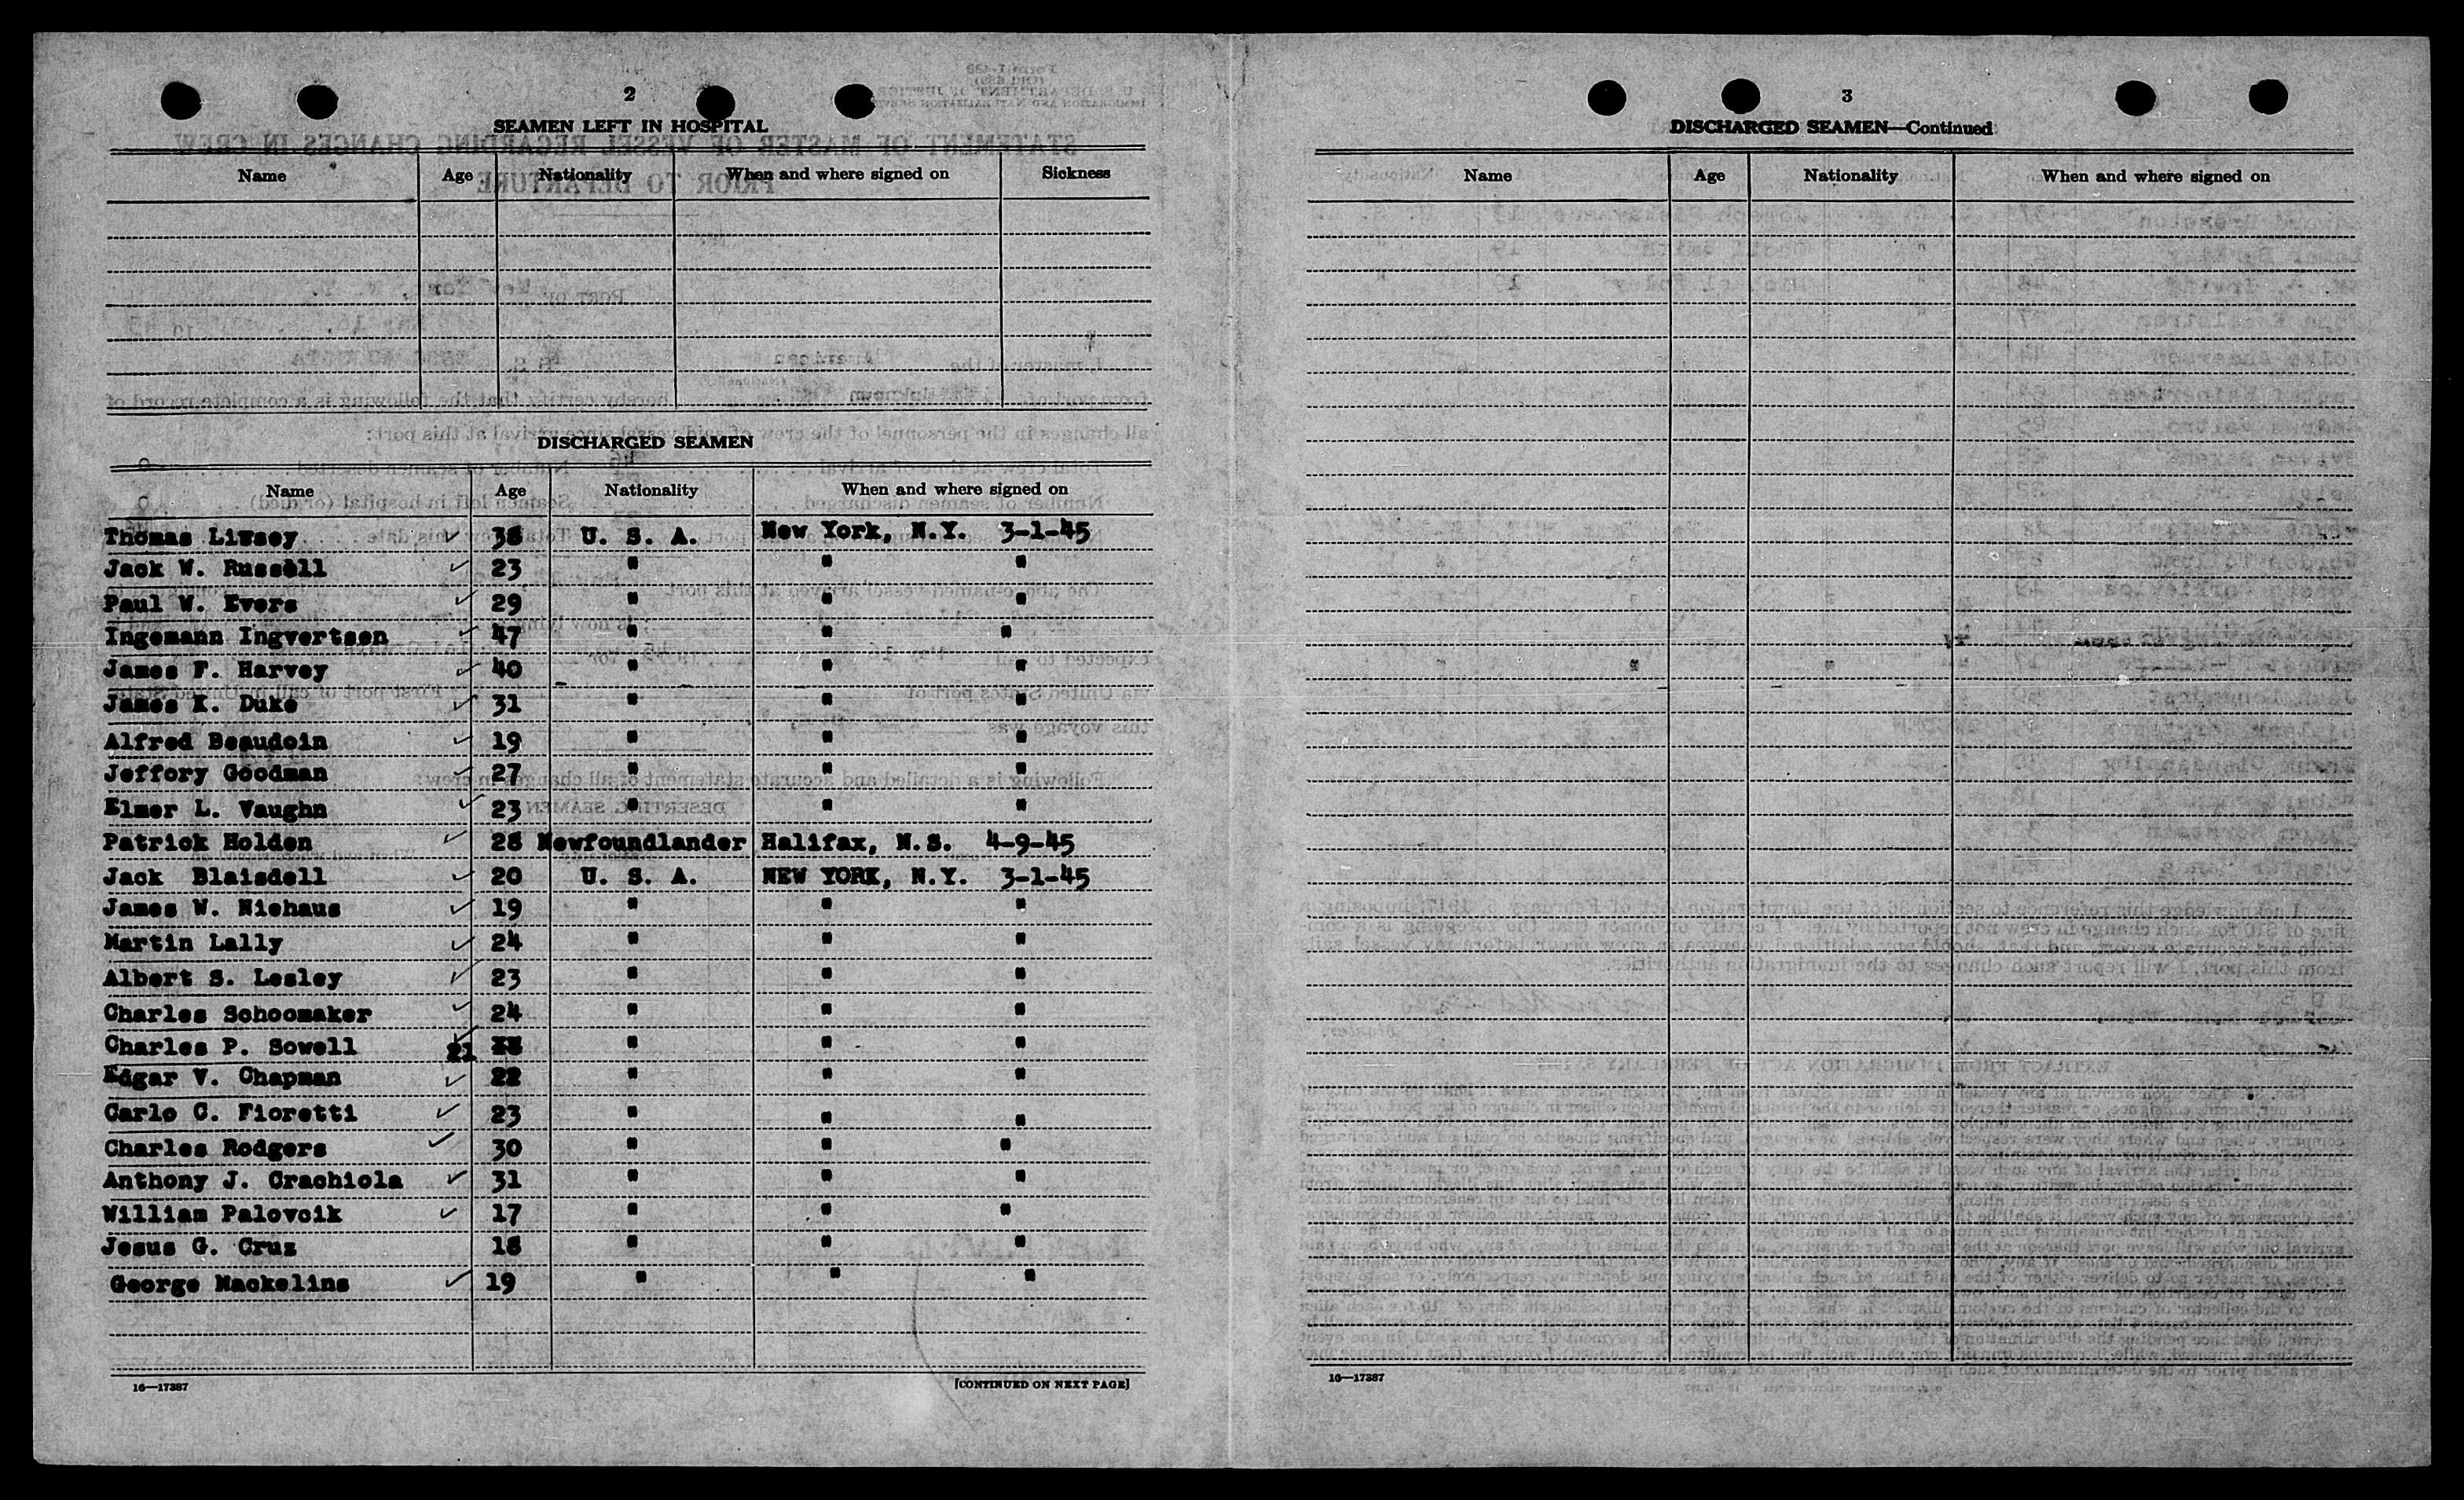 2
SEAMEN LEFT IN HOSPITAL
Name Age Nationality When and where signed on Sickness
DISCHARGED SEAMEN
Name Age Nationality When and where signed on
Thomas Livsey ✓ 38 U. S. A. New York, N.Y. 3-1-45
Jack W. Russell ✓ 23 " " "
Paul W. Evers ✓ 29 " " "
Ingemann Ingvertsen ✓ 47 " " "
James F. Harvey ✓ 40 " " "
James K. Duke ✓ 31 " " "
Alfred Beaudoin ✓ 19 " " "
Jeffory Goodman ✓ 27 " " "
Elmer L. Vaughn ✓ 23 " " "
Patrick Holden ✓ 28 Newfoundlander Halifax, N.S. 4-9-45
Jack Blaisdell ✓ 20 U. S. A. NEW YORK, N.Y. 3-1-45
James W. Niehaus ✓ 19 " " "
Martin Lally ✓ 24 " " "
Albert S. Lesley ✓ 23 " " "
Charles Schoomaker ✓ 24 " " "
Charles P. Sowell ✓ 21 " " "
Edgar V. Chapman ✓ 22 " " "
Carlo C. Fioretti ✓ 23 " " "
Charles Rodgers ✓ 30 " " "
Anthony J. Crachiola ✓ 31 " " "
William Palovcik ✓ 17 " " "
Jesus G. Cruz 18 " " "
George Mackelins ✓ 19 " " "
16—17387 [CONTINUED ON NEXT PAGE]
3
DISCHARGED SEAMEN—Continued
Name Age Nationality When and where signed on
16—17387